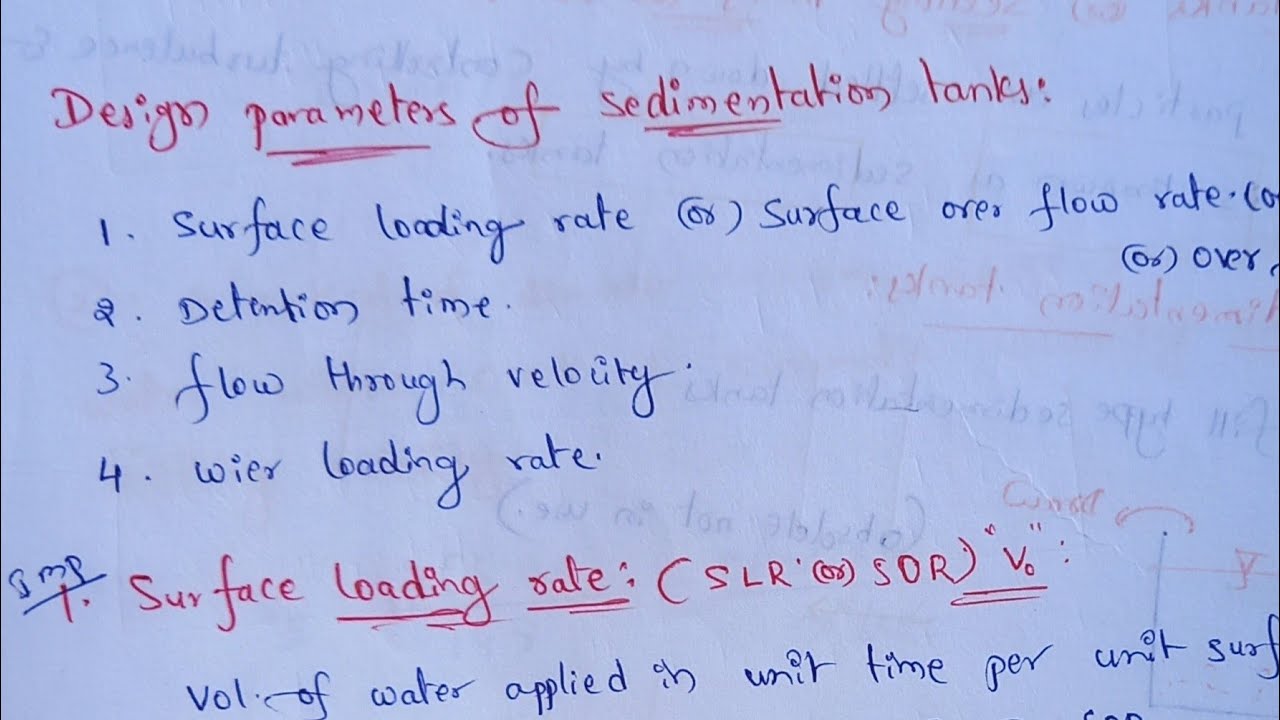 Design parameters of sedimentation tanks:
1. Surface loading rate (or) Surface over flow rate. (or
(or) over
2. Detention time.
3. flow through velocity.
4. wier loading rate.
Imp
1. Surface loading rate: (SLR (or) SOR) "V₀":
Vol. of water applied in unit time per unit surf